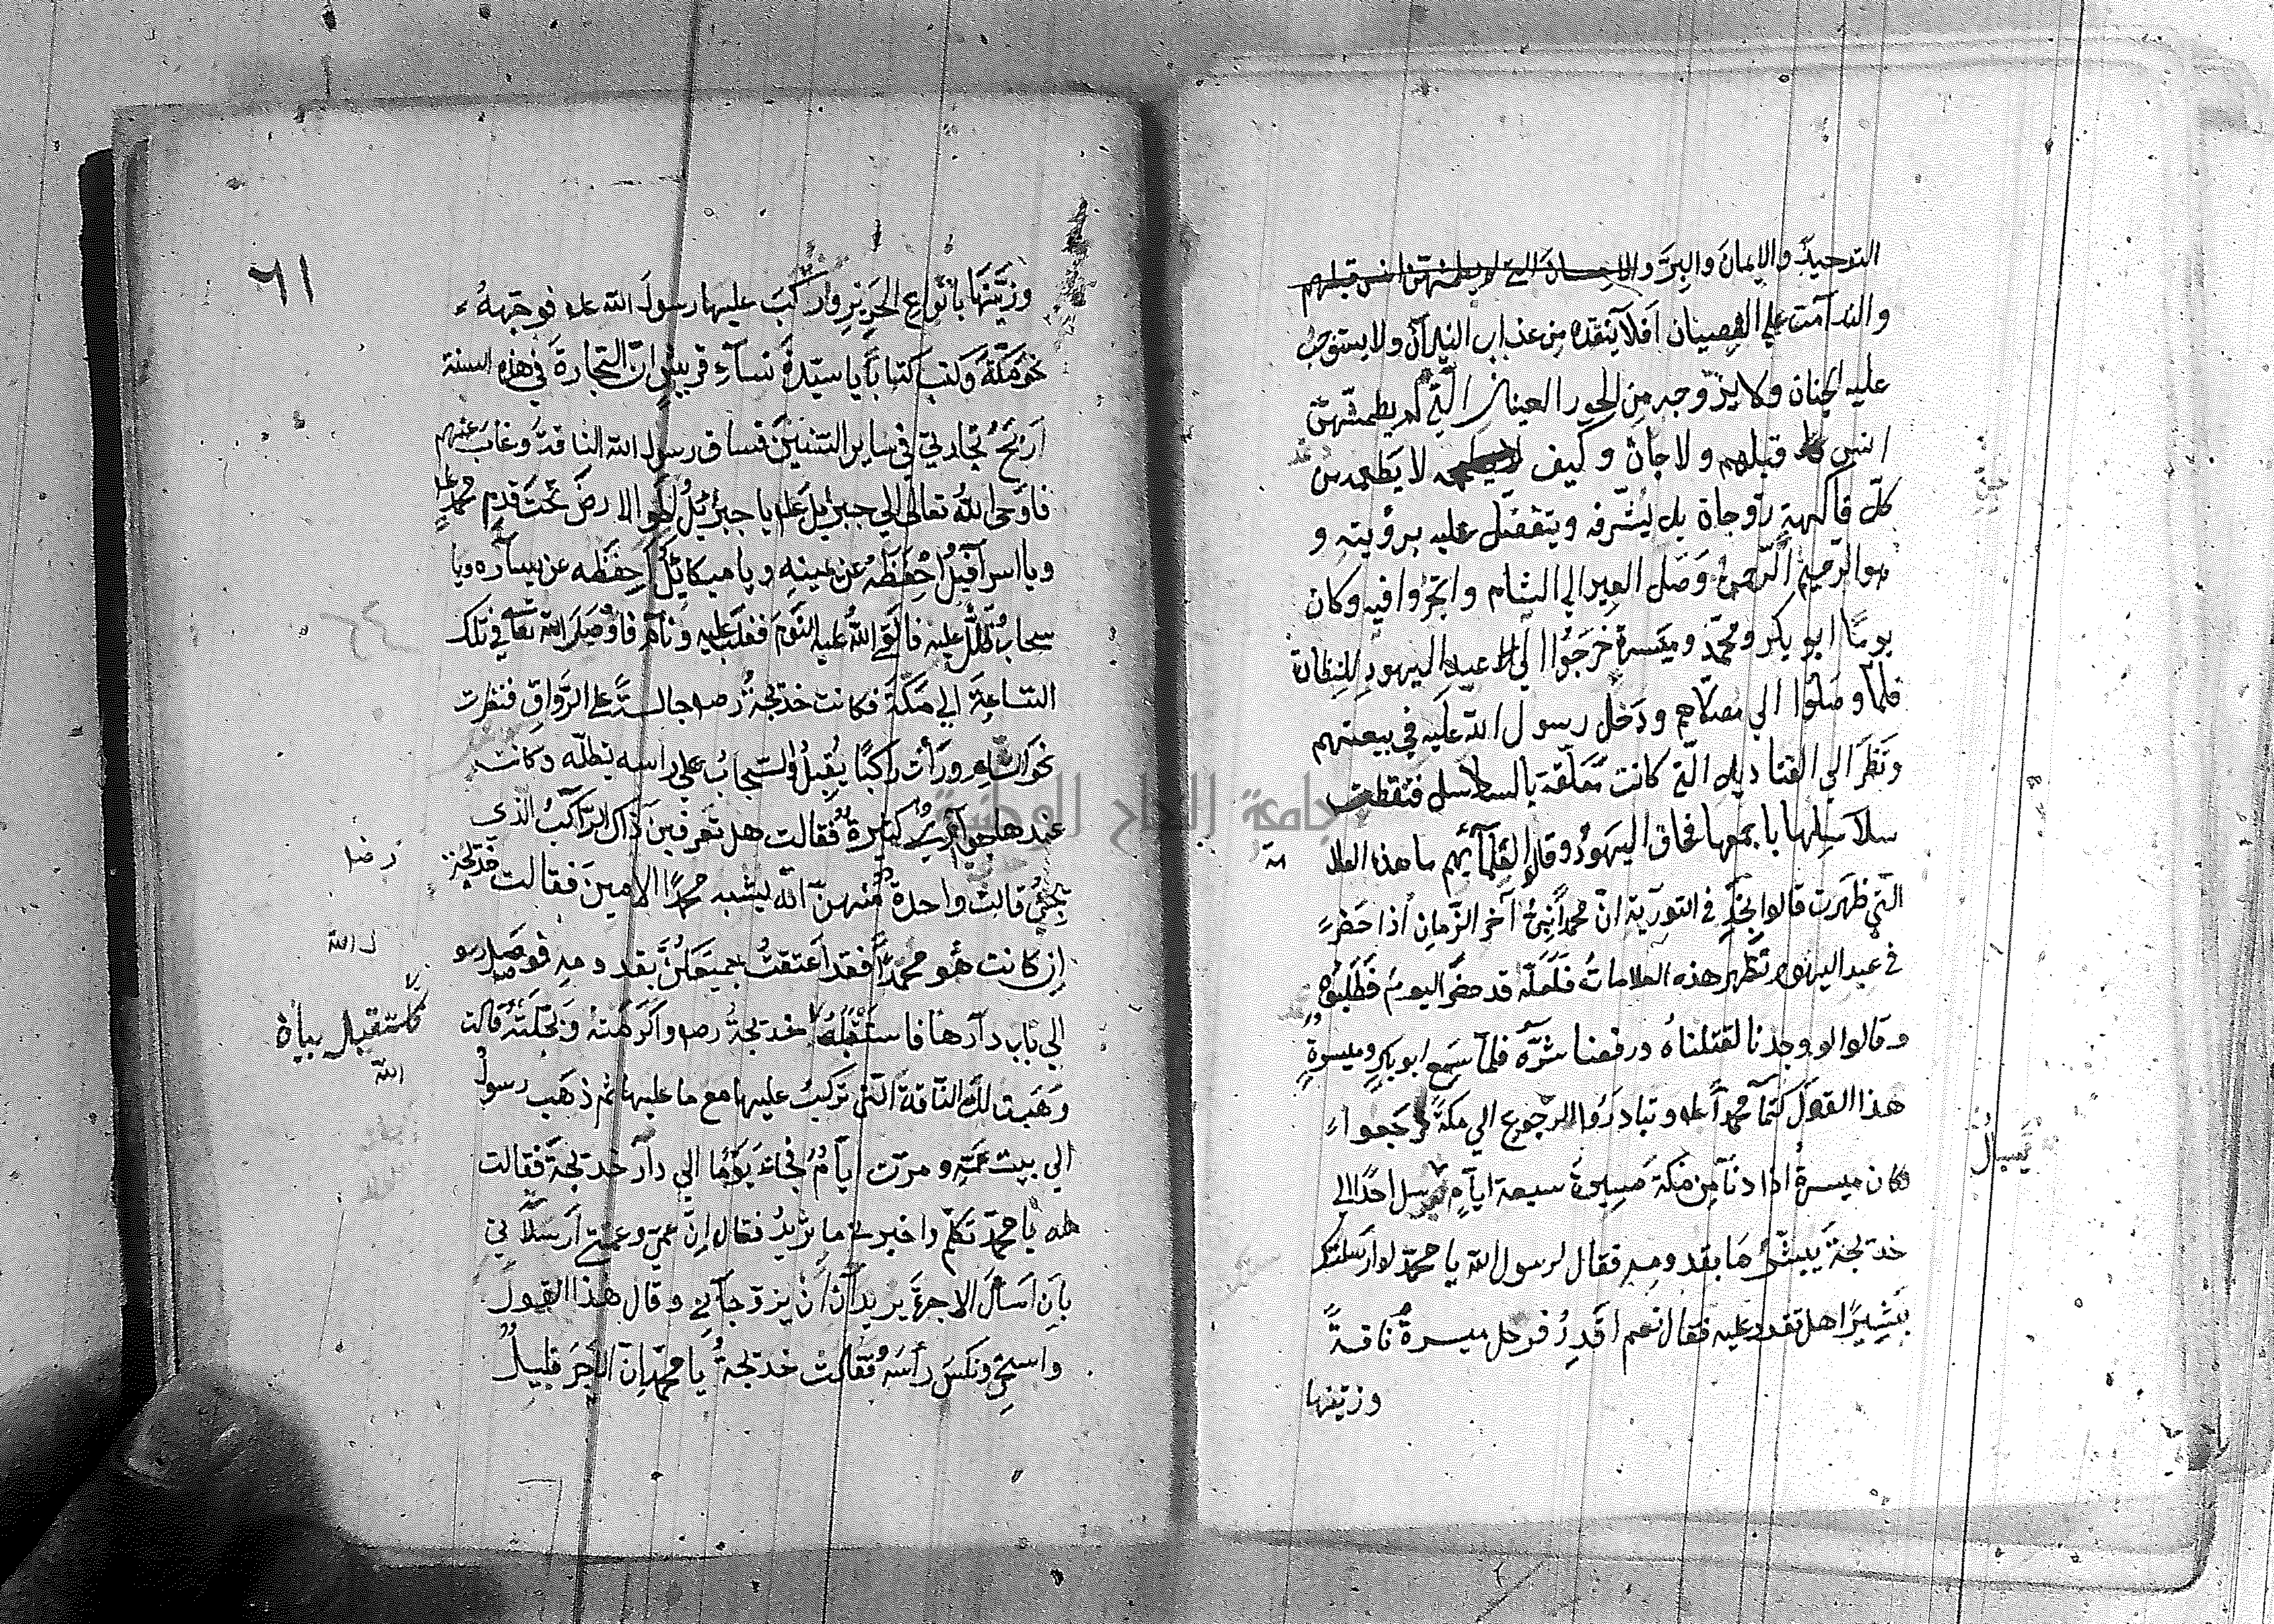 التوحيد والإيمان والبر والاحسان التي لم يطمثهن انس قبلهم
والندآمت علي العصيان افلا ينقده من عذاب النيرآن ولا يستوجب
عليه الجنان ولا يزوجه من الحور العين التي لم يطمثهن
انس قبلهم ولا جان وكيف لا يطعمه من
كل فاكهة زوجاة بل يشرفه ويتفضل عليه برؤيته و
هو الرحيم الرحمن وصل العير الي الشام واتجروا فيه وكان
يوما ابو بكر ومحمد وميسرة خرجوا الي عيد اليهود للنظارة
فلمآ وصلوا الي مصلاهم ودخل رسول الله عليه في بيعتهم
ونظر الي القناديل التي كانت معلقة بالسلاسل فتقطعت
سلاسلها باجمعها فخاف اليهود وقالوا لعلمآئهم ما هذه العلا
مة
التي ظهرت قالوا نجد في التورية ان محمدا نبي آخر الزمان اذا حضر
في عيد اليهود تظهر هذه العلامات فلعله قد حضر اليوم فطلبوه
وقالوا لو وجدنا لقتلناه ودفعنا شره فلما سمع ابو بكر وميسرة
هذا القول كتما محمدا عله وتبادروا الرجوع الي مكة فرجعوا
وكان ميسرة اذا دنآ من مكة مسيرة سبعة ايام يرسل احدا الي
خديجة يبشرها بقدومه فقال لرسول الله يا محمد لو ارسلتك
بشيرا هل تقدر عليه فقال نعم اقدر فرحل ميسرة ناقة
وزينها
٦١
وزينها بانواع الحرير واركب عليها رسول الله عله فوجهه
نحو مكة وكتب كتابا يا سيدة نسآء قريش ان التجارة في هذه السنة
اربح تجارتي في ساير السنين فساق رسول الله الناقة وغاب عنهم
فاوحى الله تعالى الي جبرايل عله يا جبرئيل اطو الارض تحت قدم محمد
ويا اسرآفيل احفظه عن يمينه ويا ميكائيل احفظه عن يسآره ويا
سحاب ظلل عليه فالقي الله عليه النوم فغلب عليه ونآم فاوصله الله تعا في تلك
الساعة الي مكة فكانت خديجة رضه جالسة علي الرواق فنظرت
نحو الشام ورأت راكبا يقبل والسحاب علي راسه يظله وكانت
عندها جوآري كثيرة فقالت هل تعرفين ذآك الراكب الذي
يجئ قالت واحدة منهن انه يشبه محمدا الامين فقالت خديجة
ان كانت هو محمدا فقد اعتقت جميعكن بقدومه فوصل رسو
ل الله
الي باب دآرها فاستقبله خديجة رضه واكرمته وبجلته قالت
وهبت لك الناقة التي تركب عليها مع ما عليها ثم ذهب رسول
الله
الي بيت عمه ومرت ايآم فجآء يوما الي دآر خديجة فقالت
له يا محمد تكلم واخبرني ما تريد فقال ان عمي وعمتي ارسلاني
بان اسأل الاجرة يريدآن ان يزوجآني وقال هذا القول
واستحي ونكس رأسه فقالت خديجة يا محمد ان الاجر قليل